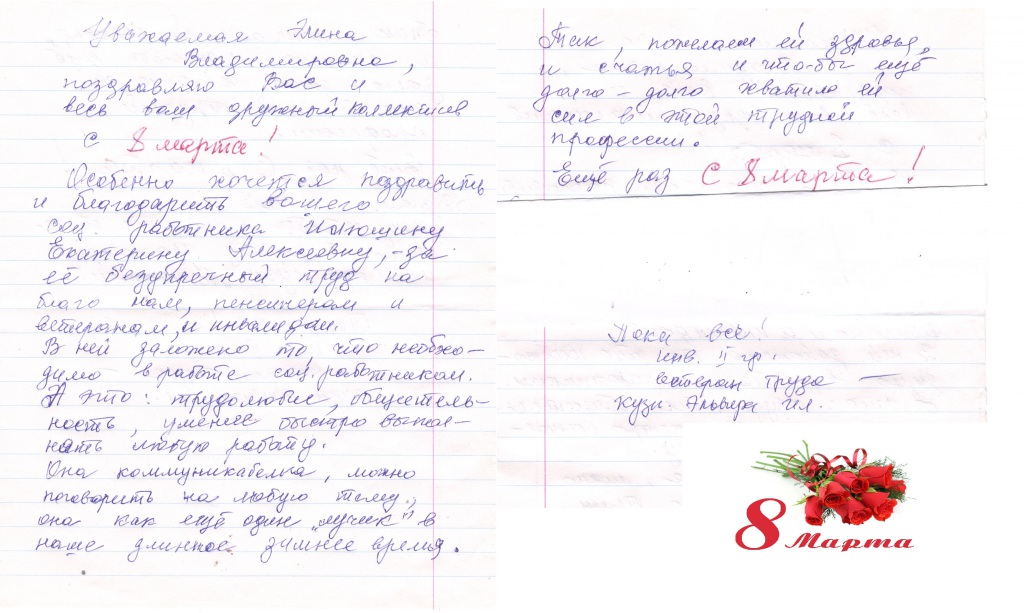 Уважаемая Элина
Владимировна,
поздравляю Вас и
весь ваш дружный коллектив
с 8 марта!
Особенно хочется поздравить
и благодарить вашего
соц. работника
Екатерину Алексеевну, - за
её бездпречный труд на
благо нам, пенсинерам и
ветеранам, и инвалидам.
В ней заложено то, что необхо-
димо в работе соц. работником.
А это: трудолюбие, общитель-
ность, умение быстро выпол-
нать любую работу.
Она коммуникабелна, можно
поговорить на любую тему.,
она как ещё один "лучик" в
наше длинное зимнее время.
Так, пожелаем ей здровья,
и счастья и что-бы ещё
долго - долго хватило ей
сил в этой трудной
профессии.
Ещё раз С 8 марта!
Пока всё!
инв. II гр.
ветеран труда —
Кузн. Эльвира Ил.
8 Марта